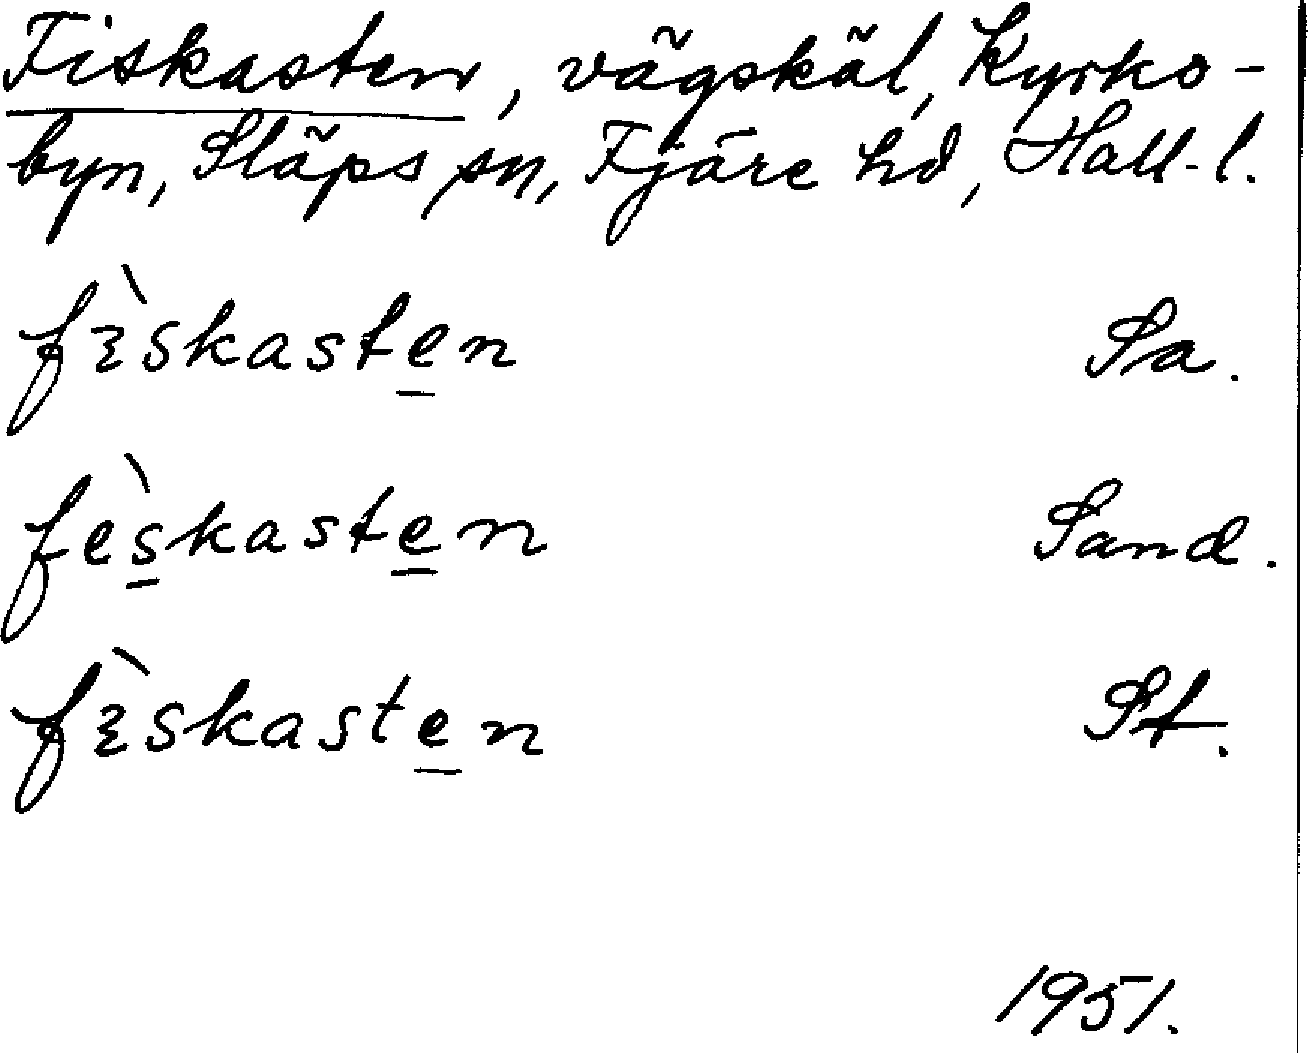 Fiskasten, vägskäl, Kyrko-
byn, Släps sn, Fjäre hd, Hall. l.
fɛ̀skasten Sa.
fèskasten Sand.
fɛ̀skasten St.
1951.